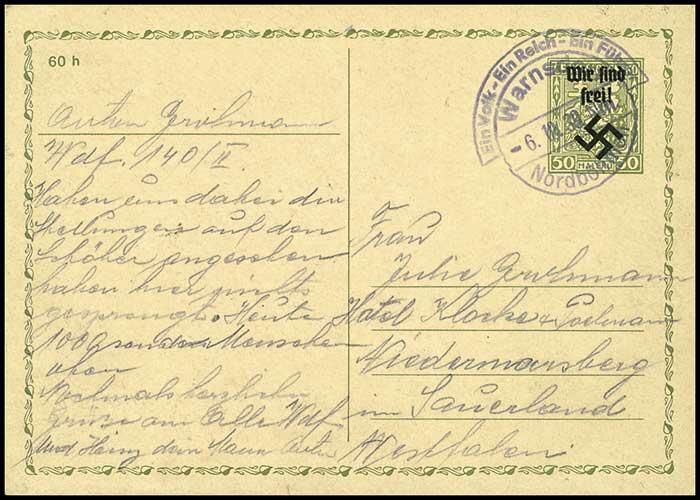 60 h
Ein Volk - Ein Reich - Ein Füh
Warns
- 6. 10. 38
Nordbö
Wir sind
frei!
50 HALERU 50
Anton Grohmann
Wdf. 140/II
Haben uns daher die
Stellungen auf den
angesehen
haben hier
gesprengt. Heute
Menschen
oben
Nochmals herzliche
Grüße an Alle Wdf
und Heinz dein Mann Anton
Frau
Julie Grohmann
Hotel Klocke &
Niedermarsberg
im Sauerland
Westfalen